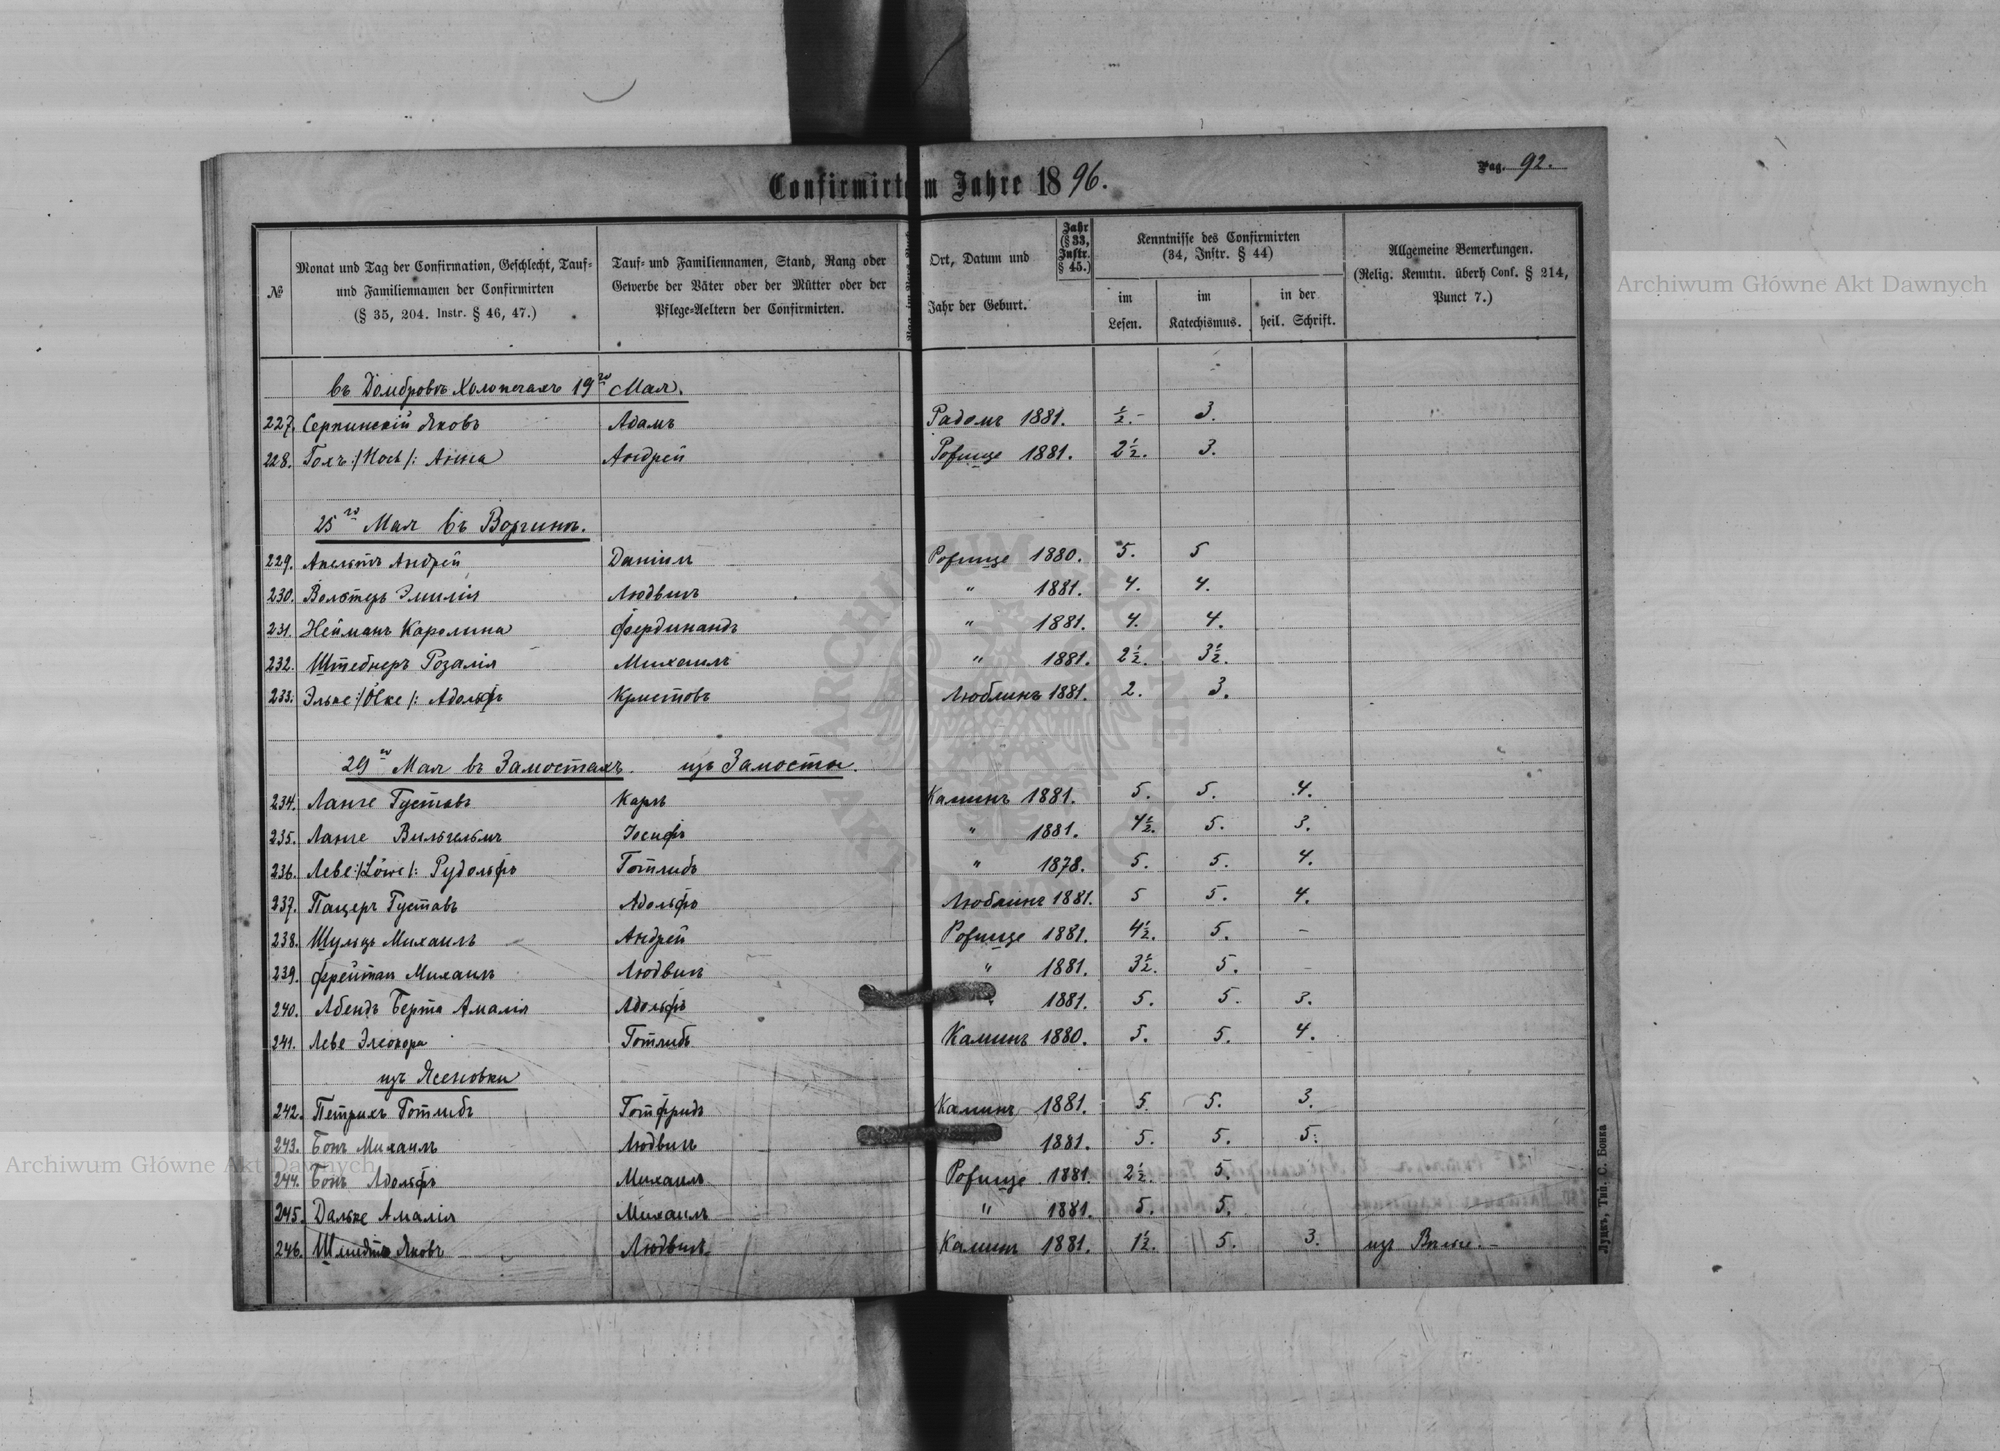 Confirmirte im Jahre 1896.
Pag. 92.
№
Monat und Tag der Confirmation, Geschlecht, Tauf-
und Familiennamen der Confirmirten
(§ 35, 204. Instr. § 46, 47.)
Tauf- und Familiennamen, Stand, Rang oder
Gewerbe der Väter oder der Mütter oder der
Pflege-Aeltern der Confirmirten.
Ort, Datum und
Jahr der Geburt.
Jahr
(§ 33,
Instr.
§ 45.)
Kenntnisse des Confirmirten
(34, Instr. § 44)
im
Lesen.
im
Katechismus.
in der
heil. Schrift.
Allgemeine Bemerkungen.
(Relig. Kenntn. überh Conf. § 214,
Punct 7.)
въ Домбровѣ Холопечахъ 19го Мая.
227. Серпинскій Яковъ Адамъ Радомъ 1881. ½.- 3.
228. Гохъ :/Hoch/: Анна Андрей Рожище 1881. 2½. 3.
25го Мая въ Ворчинѣ.
229. Апельтъ Андрей Даніилъ Рожище 1880. 5. 5
230. Вольтеръ Эмилія Людвигъ " 1881. 4. 4.
231. Нейманъ Каролина Фердинандъ " 1881. 4. 4.
232. Штебнеръ Розалія Михаилъ " 1881. 2½. 3½.
233. Эльке :/Ölke/: Адольфъ Кристовъ Люблинъ 1881. 2. 3.
29го Мая въ Замостахъ. изъ Замосты.
234. Ланге Густавъ Карлъ Каминъ 1881. 5. 5. 4.
235. Ланге Вильгельмъ Іосифъ " 1881. 4½. 5. 3.
236. Леве :/Löwe/: Рудольфъ Готлибъ " 1878. 5. 5. 4.
237. Пацеръ Густавъ Адольфъ Люблинъ 1881. 5 5. 4.
238. Шульцъ Михаилъ Андрей Рожище 1881. 4½. 5. -
239. Фрейтагъ Михаилъ Людвигъ " 1881. 3½. 5. -
240. Абендъ Берта Амалія Адольфъ " 1881. 5. 5. 3.
241. Леве Элеонора Готлибъ Каминъ 1880. 5. 5. 4.
изъ Ясеновки
242. Петрихъ Готлибъ Готфридъ Каминъ 1881. 5. 5. 3.
243. Бонъ Михаилъ Людвигъ 1881. 5. 5. 5.
244. Бонъ Адольфъ Михаилъ Рожище 1881. 2½. 5.
245. Дальке Амалія Михаилъ " 1881. 5. 5.
246. Шмидтъ Яковъ Людвигъ Каминъ 1881. 1½. 5. 3. изъ
Луцкъ, Тип. С. Бонка
Archiwum Główne Akt Dawnych
Archiwum Główne Akt Dawnych
ARCHIWUM GŁÓWNE AKT DAWNYCH